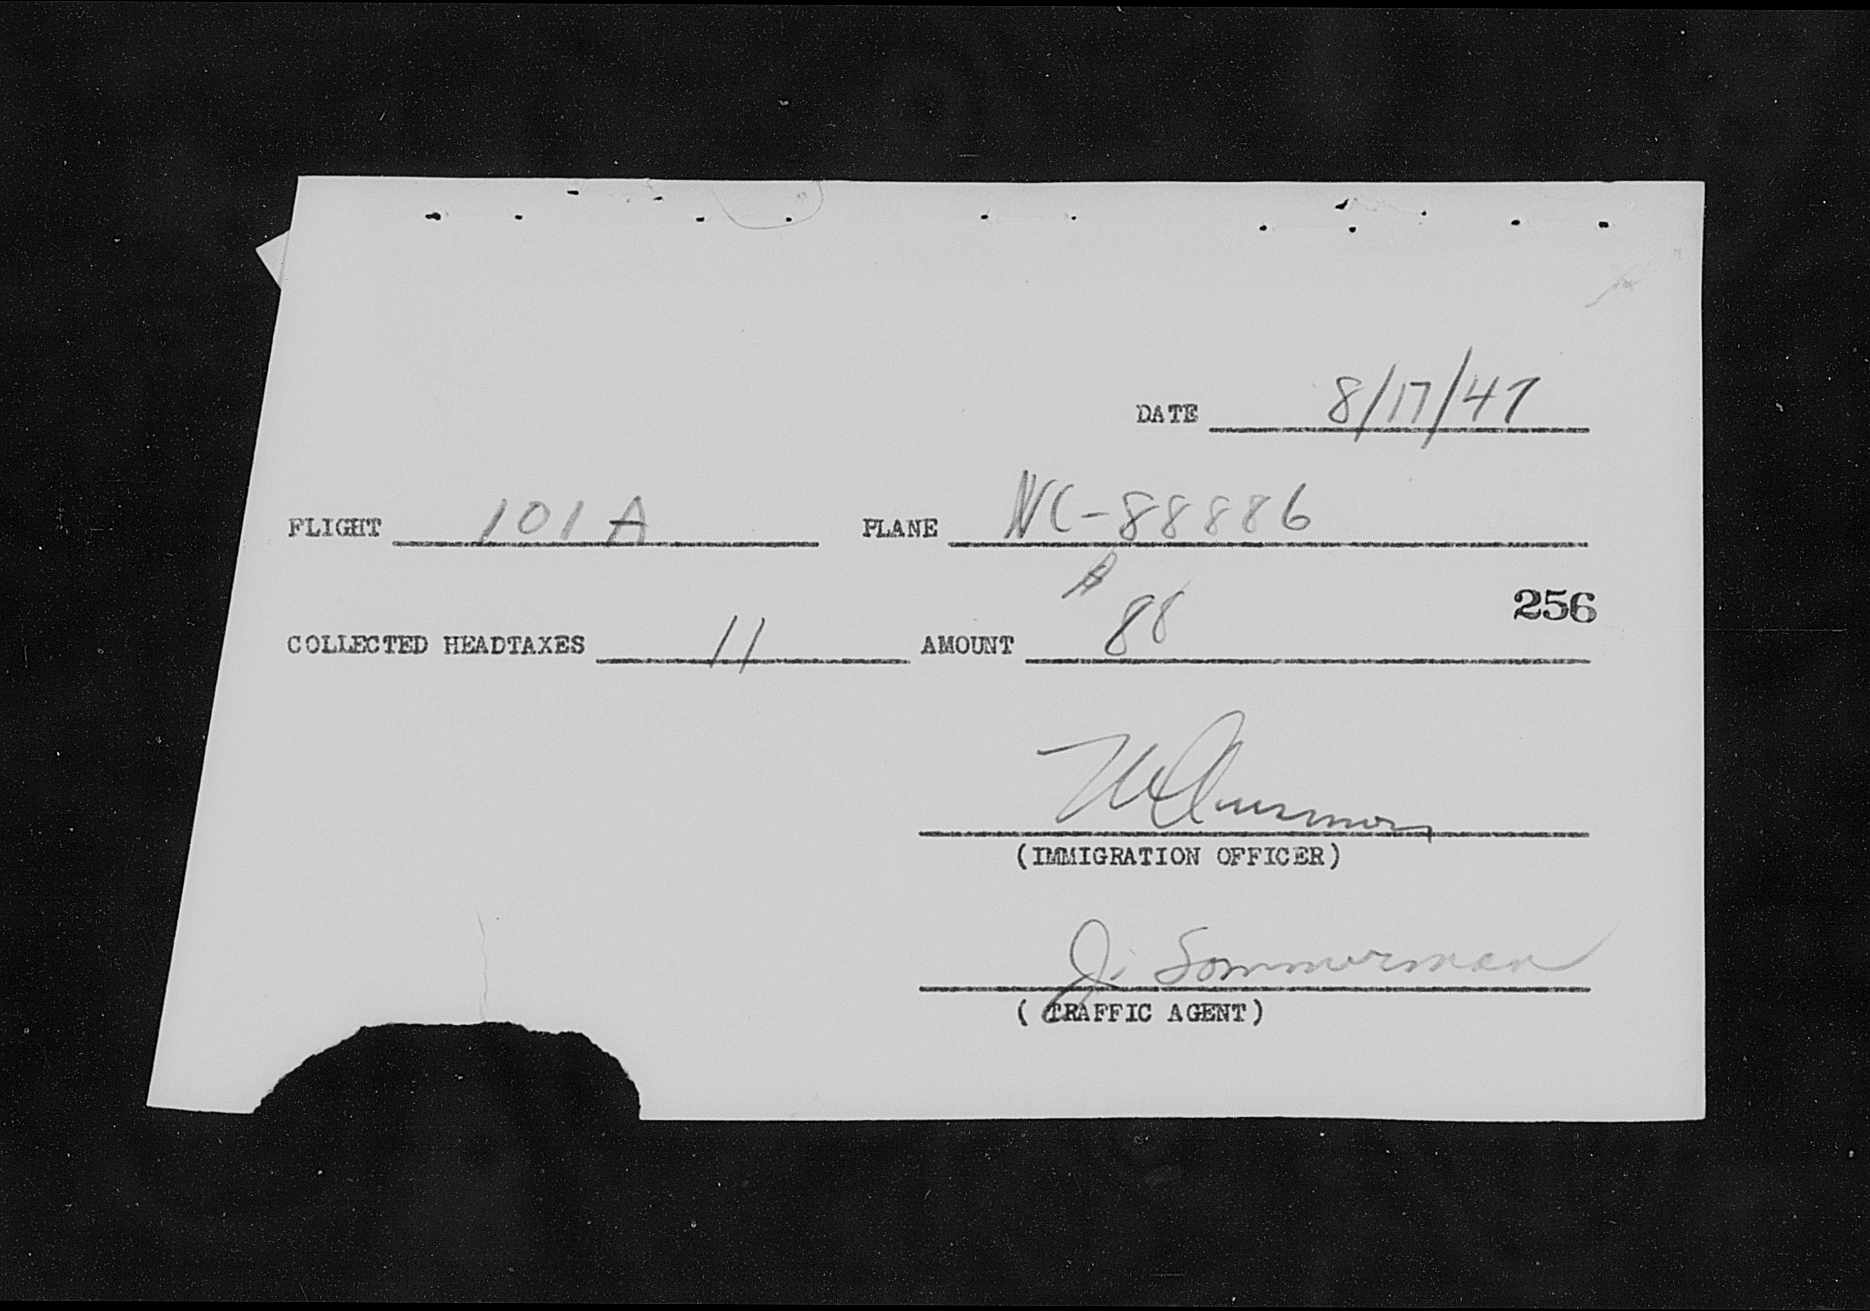 DATE 8/17/47
FLIGHT 101A PLANE NC-88886
256
COLLECTED HEADTAXES 11 AMOUNT $88
(IMMIGRATION OFFICER)
J. Sommerman
( TRAFFIC AGENT)